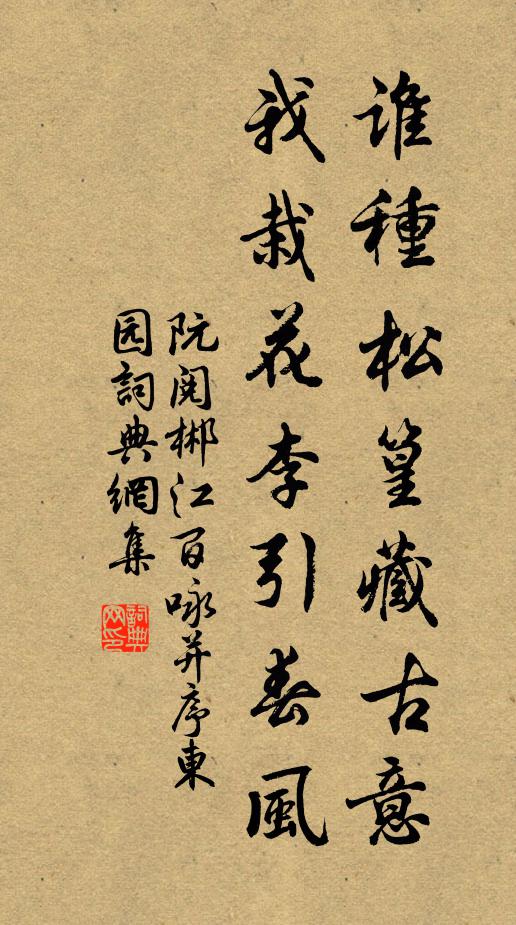 谁種松篁藏古意
我栽花李引春風
阮阅郴江百咏并序東
园詞典網集
詞典
网印